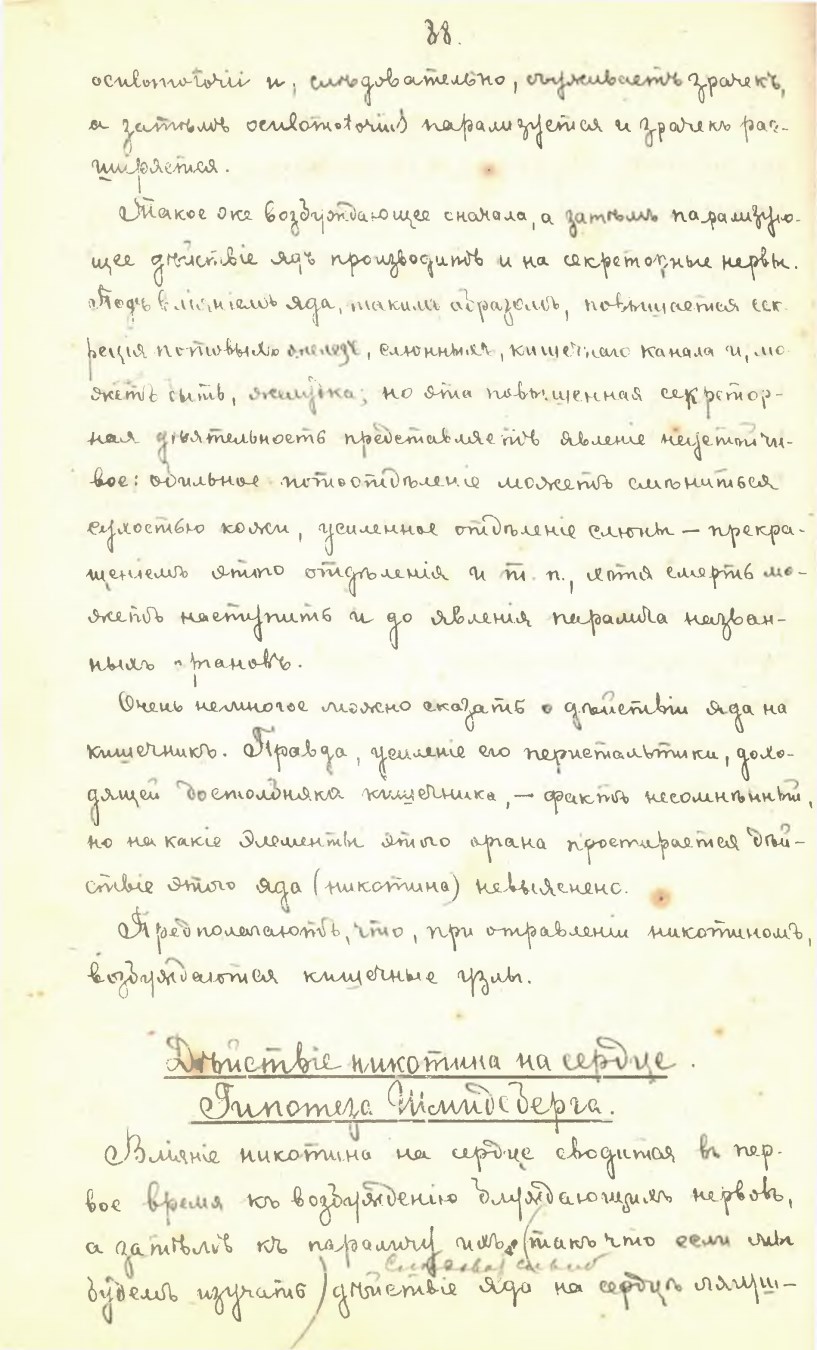 38.
oculomotorii и, слѣдовательно, съуживаетъ зрачекъ,
а затѣмъ oculomotorius парализуется и зрачекъ рас-
ширяется.
Такое же возбуждающее сначала, а затѣмъ парализую-
щее дѣйствіе ядъ производитъ и на секреторные нервы.
Подъ вліяніемъ яда, такимъ образомъ, повышается сек
реція потовыхъ железъ, слюнныхъ, кишечнаго канала и, мо
жетъ быть, желудка; но эта повышенная секретор-
ная дѣятельность представляетъ явленіе неустойчи-
вое: обильное потоотдѣленіе можетъ смѣниться
сухостью кожи, усиленное отдѣленіе слюны — прекра-
щеніемъ этого отдѣленія и т. п., хотя смерть мо-
жетъ наступить и до явленія паралича назван-
ныхъ органовъ.
Очень немногое можно сказать о дѣйствіи яда на
кишечникъ. Правда, усиленіе его перистальтики, дохо-
дящей до столбняка кишечника, — фактъ несомнѣнный,
но на какіе элементы этого органа простирается дѣй-
ствіе этого яда (никотина) невыяснено.
Предполагаютъ, что, при отравленіи никотиномъ,
возбуждаются кишечные узлы.
Дѣйствіе никотина на сердце.
Гипотеза Шмидеберга.
Вліяніе никотина на сердце сводится въ пер-
вое время къ возбужденію блуждающихъ нервовъ,
а затѣмъ къ параличу ихъ, (такъ что если мы
будемъ изучать) дѣйствіе яда на сердцѣ лягуш-